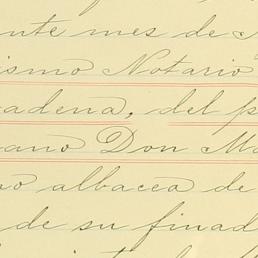 ente mes de
ismo Notario
cadena, del p
ano Don Ma
no albacea de
de su finad